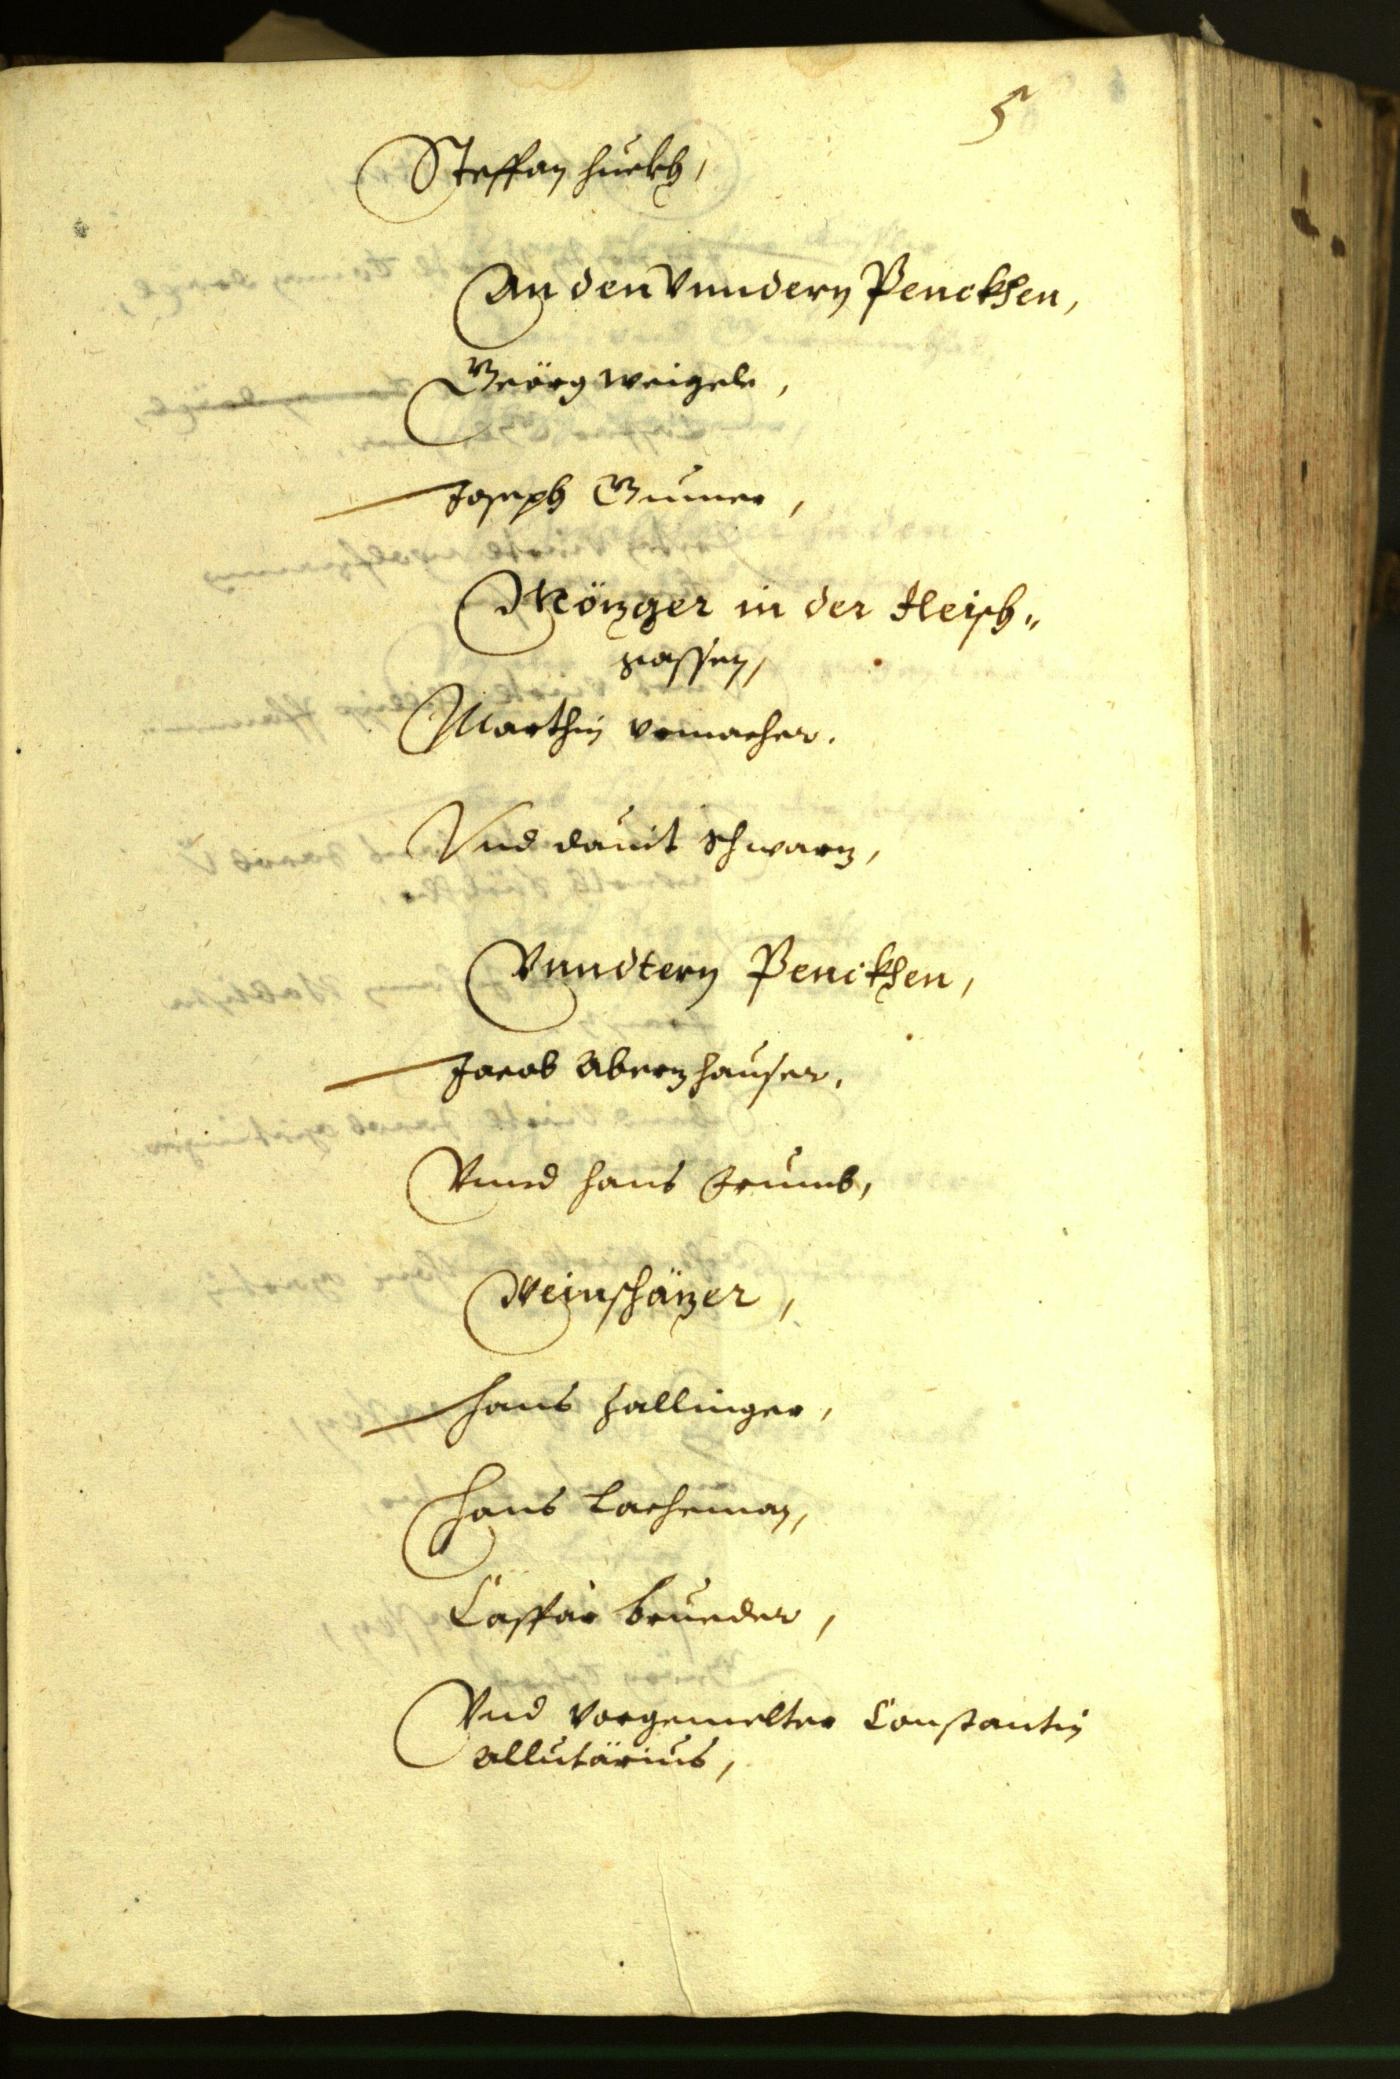 5
Steffan Huekh,
An den Vnndern Penckhen,
Geörg Weigele,
Joseph Gumer,
Mözger in der Fleisch„
gassen,
Marthin Vrmacher.
Vnd Dauit Schwarz,
Vnndtern Penckhen,
Jacob Abenzhauser,
Vnnd Hans Frumb,
Weinschäzer,
Hans Hallinger,
Hans Lacheman,
Caspar Brueder,
Vnd Vorgemelter Constantin
Allutärius,